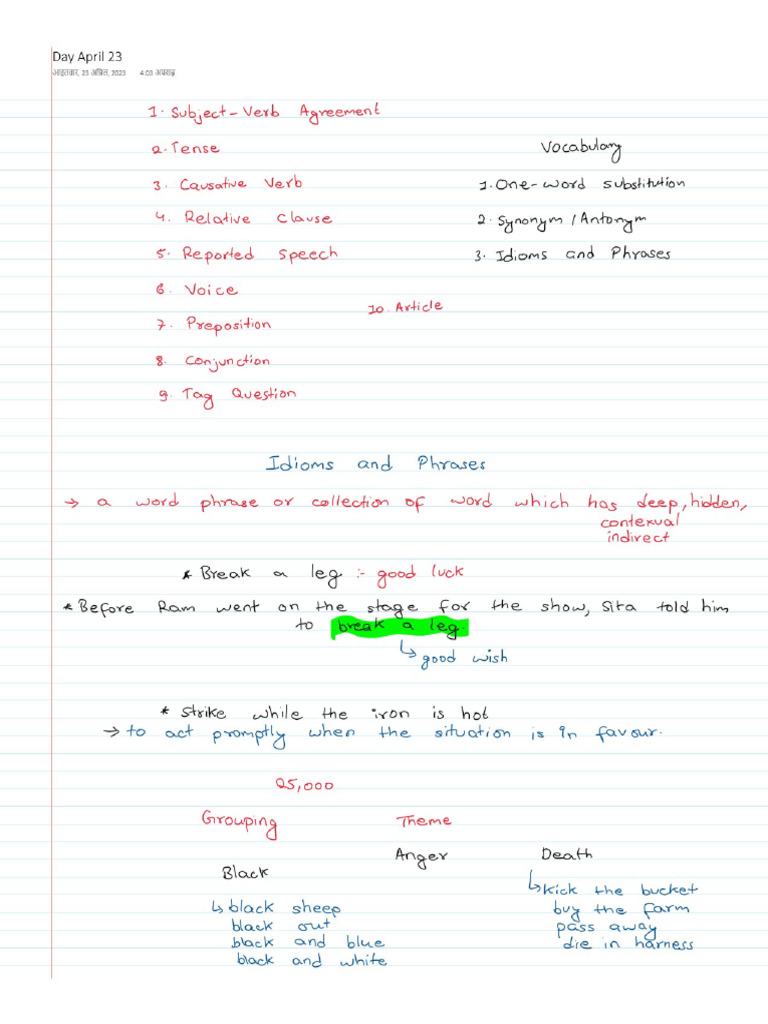 Day April 23
आइतवार, 23 अप्रिल, 2023 4:03 अपराह्न
1. Subject-Verb Agreement
2. Tense
Vocabulary
3. Causative Verb
1. One-word substitution
4. Relative Clause
2. Synonym / Antonym
5. Reported Speech
3. Idioms and Phrases
6. Voice
10. Article
7. Preposition
8. Conjunction
9. Tag Question
Idioms and Phrases
→ a word phrase or collection of word which has deep, hidden,
contexual
indirect
* Break a leg :- good luck
* Before Ram went on the stage for the show, Sita told him
to break a leg.
↳ good wish
* Strike while the iron is hot
→ to act promptly when the situation is in favour.
25,000
Grouping Theme
Anger Death
Black
↳ kick the bucket
↳ black sheep
buy the farm
black out
pass away
black and blue
die in harness
black and white